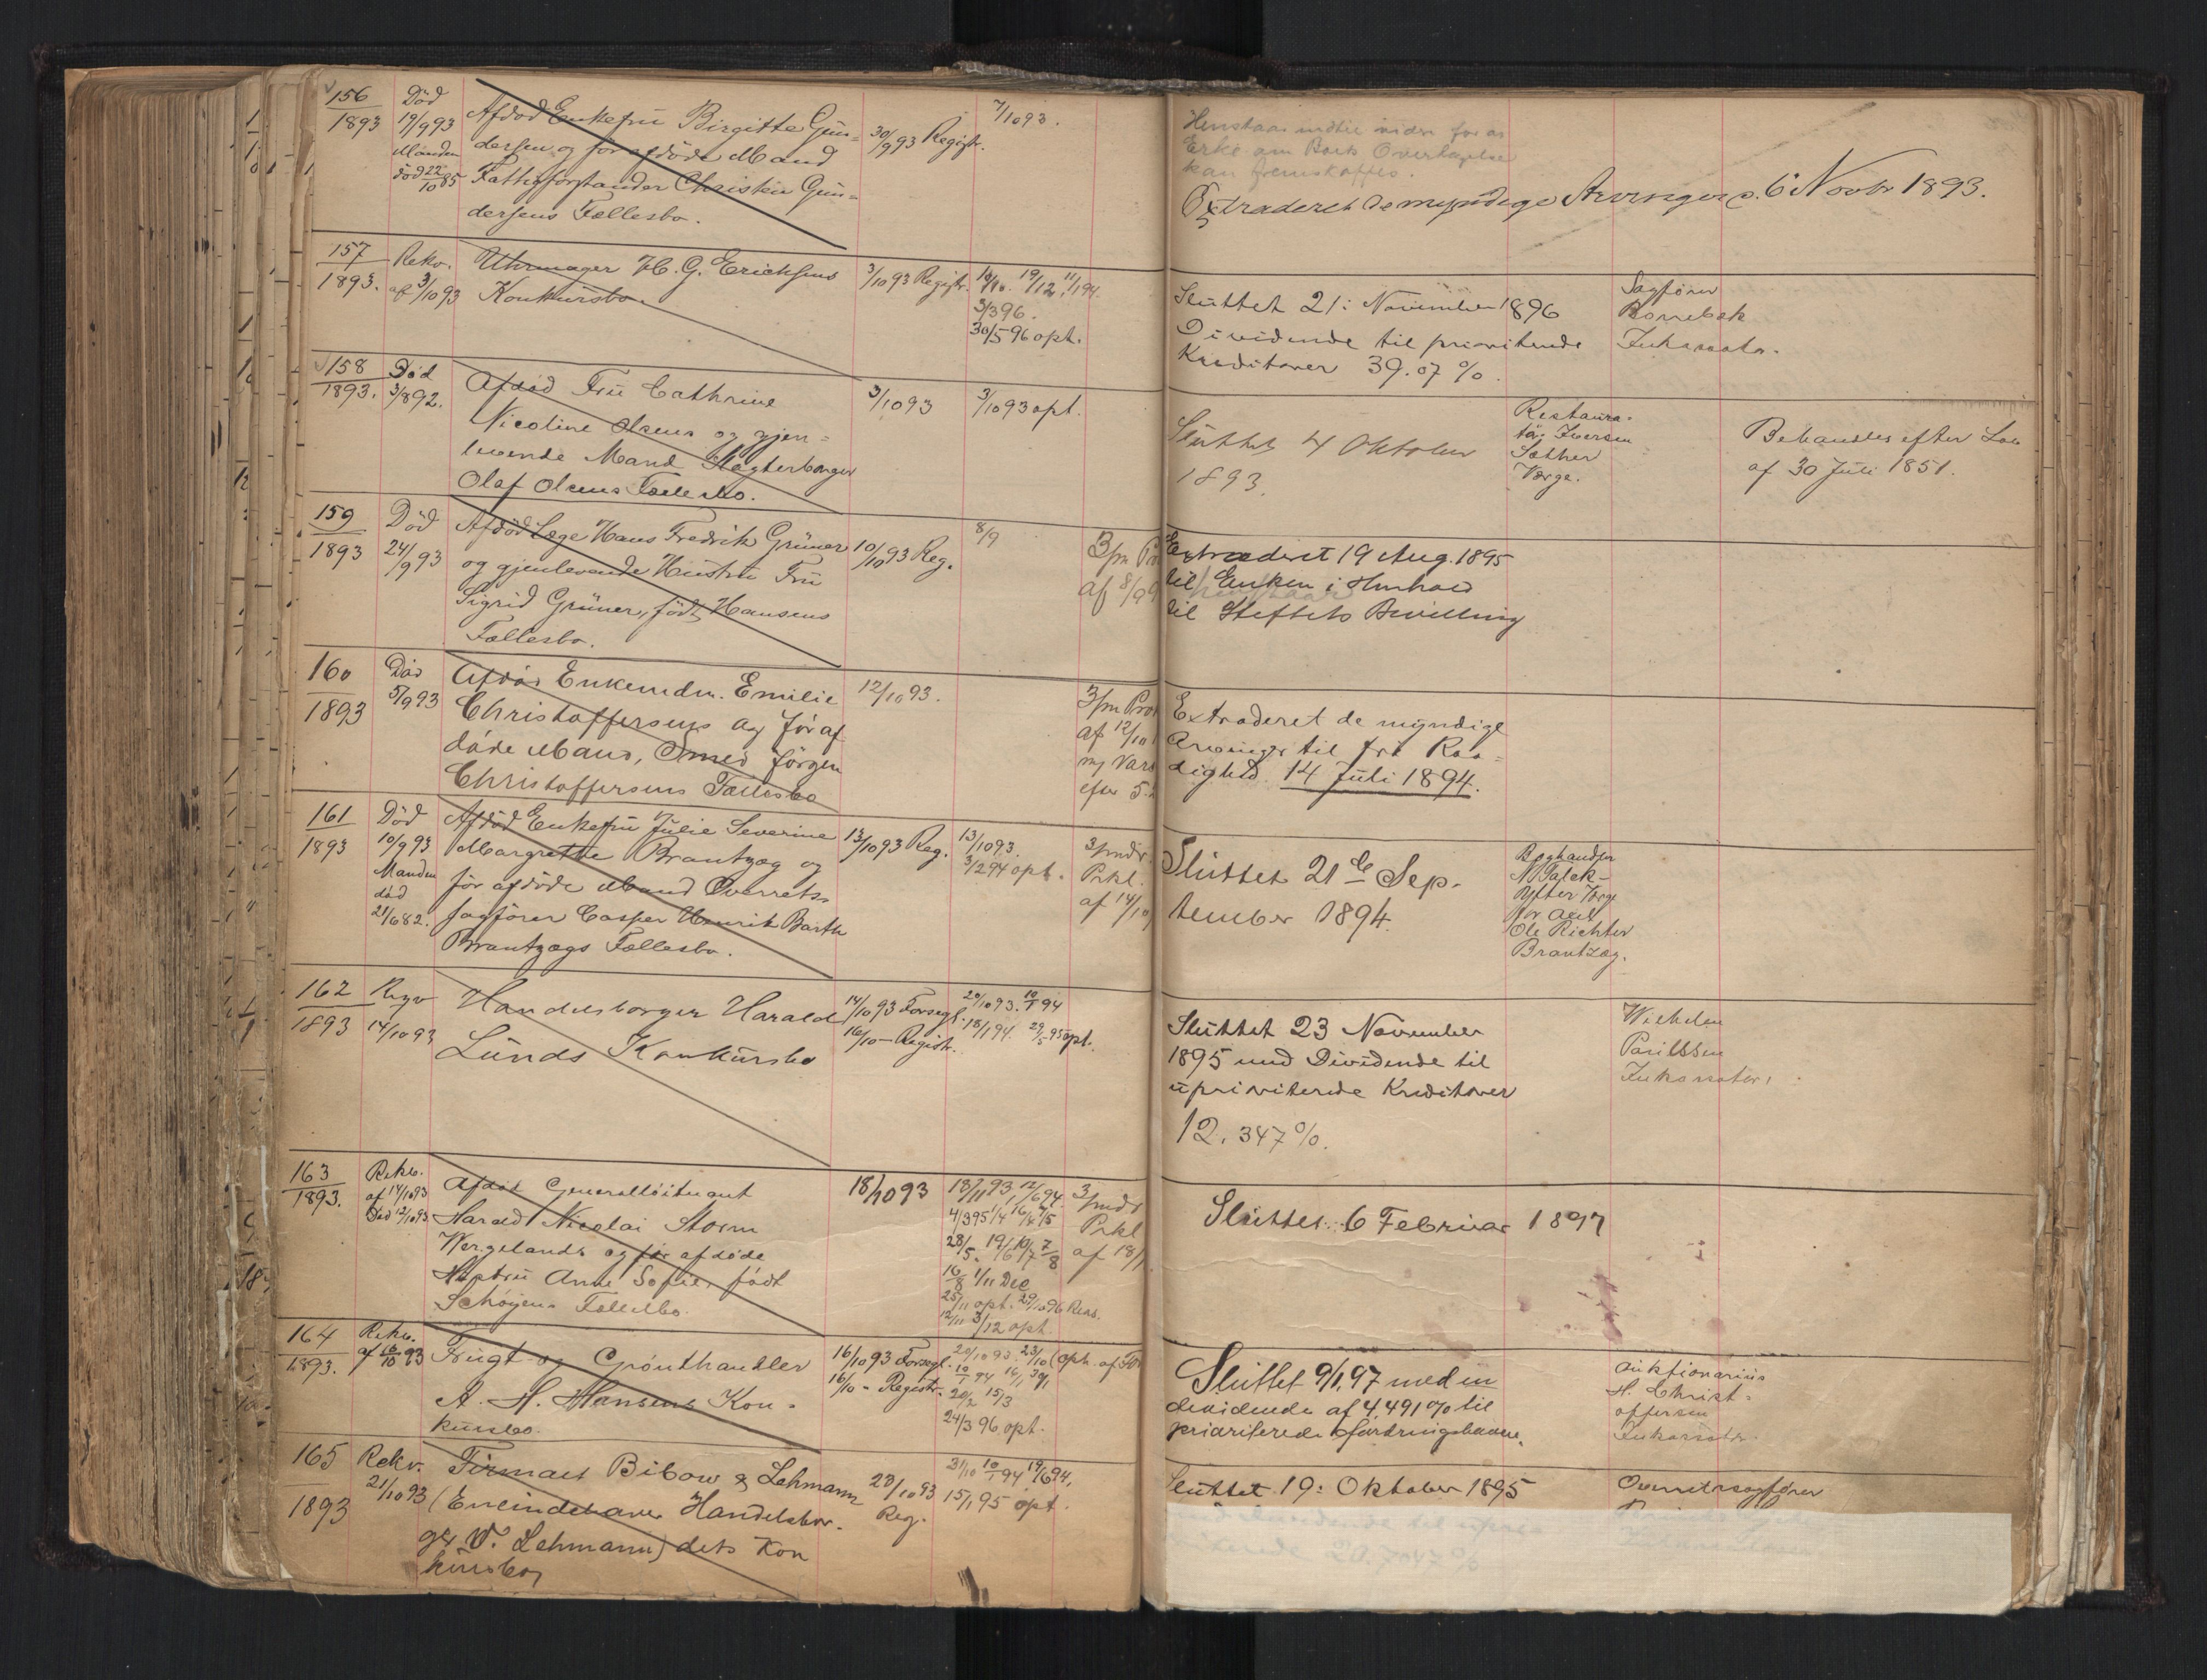 156
1893
Død
19/9 93
Manden
død 22/10 85
Afdød Enkefru Birgitte Gun-
dersen og før afdøde Mand
Fattigforstander Christen Gun-
dersens Fællesbo.
30/9 93 Registr.
7/10 93.
Henstaar indtil videre for at
Erkl om Boets Overtagelse
kan fremskaffes.
Extraderet de myndige Arvinger d. 6 Novbr 1893.
157
1893.
Rekv.
af 3/10 93
Uhrmager H. G. Erichsens
Konkursbo.
3/10 93 Registr.
19/12 11/1 94.
3/3 96.
30/5 96 opt.
Sluttet 21: November 1896
Dividende til prioriterede
Kreditorer 39.07 %.
Sagfører
Bonnebek
Inkassator.
158
1893.
Død
3/8 92.
Afdød Fru Cathrine
Nicoline Olsens og gjen-
levende Mand Slagterborger
Olaf Olsens Fællesbo.
3/10 93
3/10 93 opt.
Sluttet 4 Oktober
1893.
Restaura-
tør Iversen
Sæther
Værge.
Behandles efter Lov
af 30 Juli 1851.
159
1893
Død
24/9 93
Afdød Læge Hans Fredrik Grüner
og gjenlevende Hustru Fru
Sigrid Grüner, født Hansens
Fællesbo.
10/10 93 Reg.
8/9
3/m Pro
af 8/9 9
Extraderet 19 Aug. 1895
til Enken i Henhold
til Stiftets Bevilling
160
1893
Død
5/9 93
Afdød Enkemdm. Emilie
Christoffersens og før af-
døde Mand, Smed Jørgen
Christoffersens Fællesbo
12/10 93.
3/m Pro
af 12/10
m/ Vars
efter 5.
Extraderet de myndige
Arvinger til fri Raa-
dighed. 14 Juli 1894.
161
1893
Død
10/9 93
Manden
død
21/6 82.
Afdød Enkefru Julie Severine
Margrethe Brantzæg og
før afdøde Mand Overrets-
sagfører Casper Henrik Barth
Brantzægs Fællesbo.
13/10 93 Reg.
13/10 93.
3/2 94 opt.
3/mdr.
Prkl.
af 14/10
Sluttet 21de Sep-
tember 1894.
Boghandler
N. Falck-
Ytter Værge
for
Ole Richter
Brantzæg.
162
1893
Rqv
14/10 93
Handelsborger Harald
Lunds Konkursbo
14/10 93 Forsegl.
16/10 - Registr.
20/10 93. 10/1 94
18/1 94. 29/5 95 opt.
Sluttet 23 November
1895 med Dividende til
uprioriterede Kreditorer
12.347%.
Wilhelm
Paulssen
Inkassator.
163
1893.
Rekv.
af 14/10 93
Død 12/10 93
Afdød Generalløitnant
Harald Nicolai Storm
Wergelands og før afdøde
Hustru Anne Sofie, født
Schøyens Fællesbo.
18/10 93
18/11 93, 12/6 94.
4/3 95 1/4 16/4 7/5
28/5. 19/6 10/7 7/8
16/8 1/11 Dec
25/11 opt. 29/10 96 Reas.
12/11 3/12 opt.
3/mdr
Prkl
af 18/1
Sluttet 6 Februar 1897
164
1893.
Rekv.
af 16/10 93
Frugt- og Grønthandler
A. H. Hansens Kon-
kursbo.
16/10 93 Forsegl.
16/10 - Registr.
20/10 93. 23/10 (oph. af For
10/1 94 16/1 30/1
20/2 15/3
24/3 96 opt.
Sluttet 9/1 97 med en
dividende af 4,491% til
prioriterede fordringshavere.
Auktionarius
H. Christ-
offersen
Inkassator.
165
1893
Rekv.
21/10 93
Firmaet Bibow & Lehmann
(Eneindehaver Handelsbor-
ger W. Lehmann) dets Kon
kursbo
23/10 93
Reg.
31/10 10/1 94 19/6 94.
15/1 95 opt.
Sluttet 19: Oktober 1895
Overretssagfører